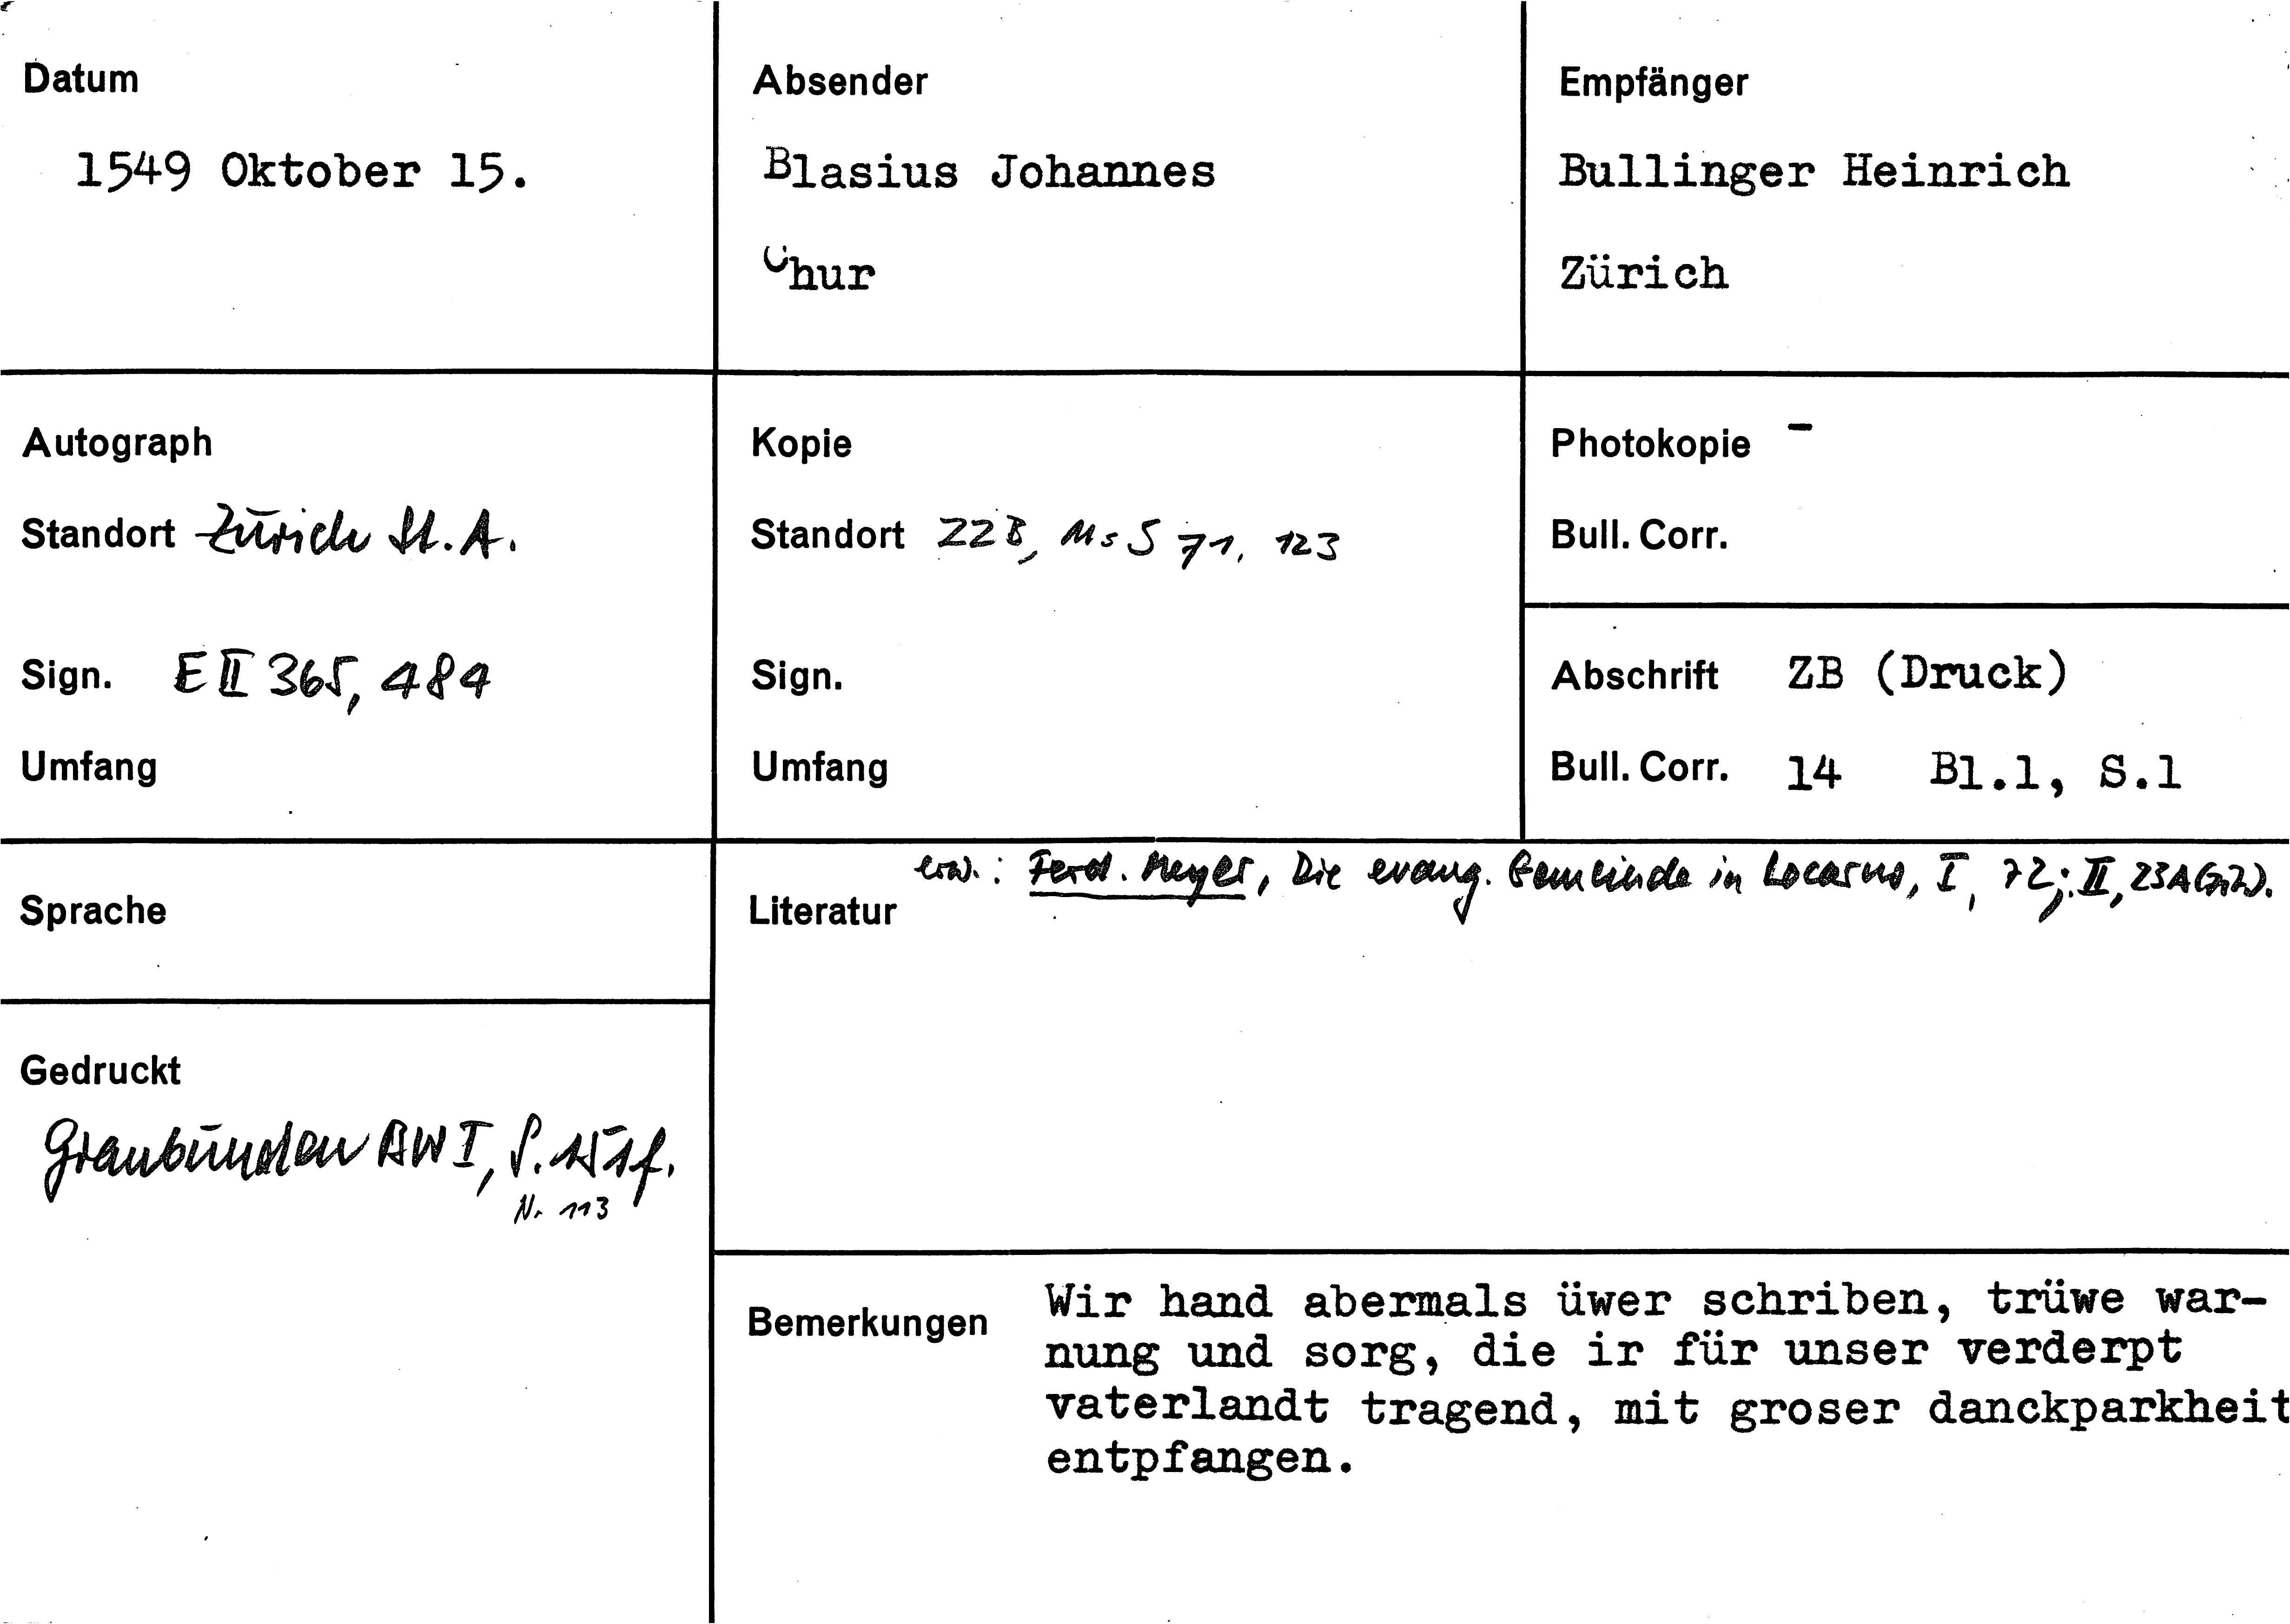 Datum
1549 Oktober 15.
Absender
Blasius Johannes
Chur
Empfänger
Bullinger Heinrich
Zürich
Autograph
Standort Zürich St.A.
Sign. E II 365, 484
Umfang
Kopie
Standort ZZB, Ms S 71, 123
Sign.
Umfang
Photokopie -
Bull. Corr.
Abschrift ZB (Druck)
Bull. Corr. 14 Bl.1, S.1
Sprache
Gedruckt
Graubünden BW I, S. 151f.
Nr. 113
Literatur
erw.: Ferd. Meyer, Die evang. Gemeinde in Locarno, I, 72; II,
Bemerkungen
Wir hand abermals üwer schriben, trüwe war-
nung und sorg, die ir für unser verderpt
vaterlandt tragend, mit groser danckparkheit
entpfangen.